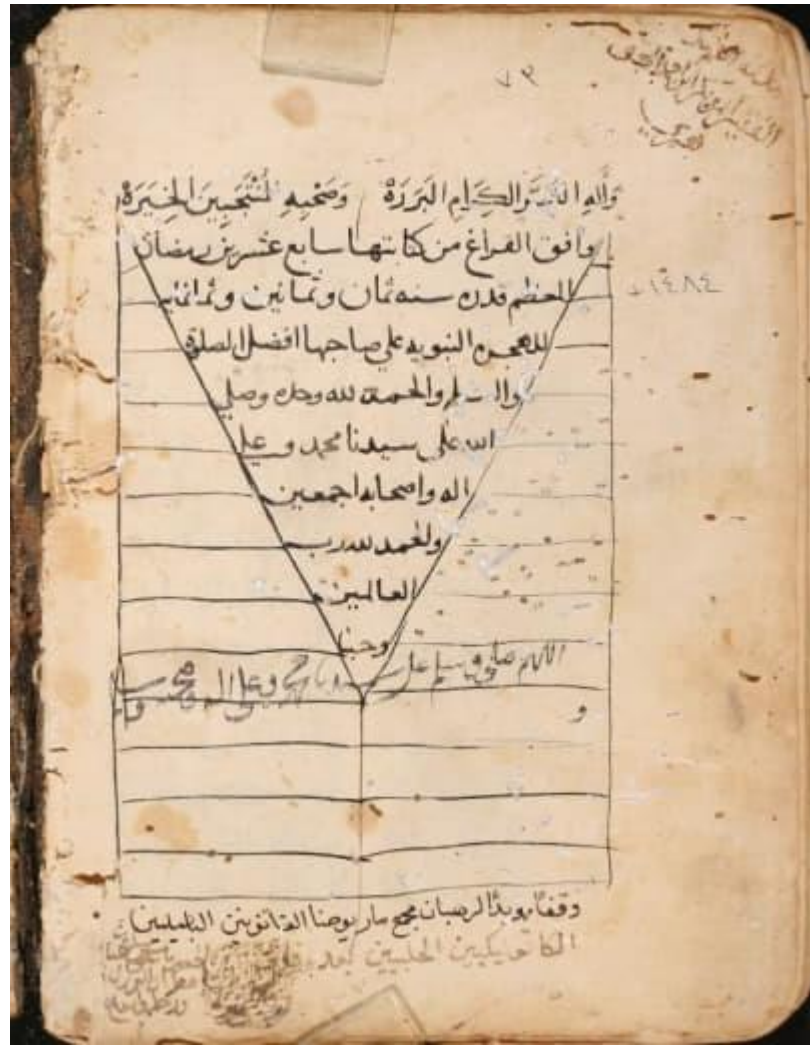 ٧٣
وَآلِهِ الكِرَامِ البَرَرَةْ وَصَحْبِهِ المُنْتَجَبِينَ الخِيَرَةْ
وافق الفراغ من كتابتها سابع عشرين رمضان
المعظم قدره سنه ثمان وثمانين وثمانمايه
١٤٨٤
للهجره النبويه على صاحبها افضل الصلوة
والسلم والحمد لله وحده وصلى
الله على سيدنا محمد وعلى
اله واصحابه اجمعين
والحمد لله رب
العالمين
وحسبنا
اللهم صلي وسلم على سيدنا محمد وعلى اله وصحبه وسلم
و
وقفًا مؤبدًا لرهبان مار يوحنا القانونيين البلديين
الكاثوليكيين الحلبيين